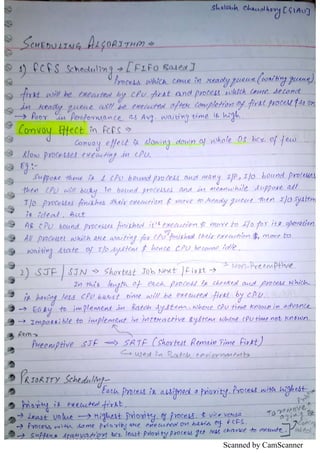 Shubham Chaudhary [GLAU]
SCHEDULING ALGORITHM →
1) FCFS Scheduling → [FIFO Based]
Process which come in ready queue (waiting queue)
first will be executed by CPU first and process which came second
in ready queue will be executed after completion of first process & so on
→ Poor in Performance as Avg. waiting time is high.
Convoy Effect in FCFS →
Convoy effect is slowing down of whole OS bcz of few
slow processes executing in CPU
Eg:-
Suppose there is 1 CPU bound process and many I/O bound processes
then CPU will busy in bound processes and in meanwhile suppose all
I/O processes finishes their execution & move to ready queue then I/O system
is ideal. but
AS CPU bound processes finished its execution & move to I/O for its operation
All processes which are waiting for CPU finished their execution & move to
waiting state of I/O system & hence CPU become idle.
2) SJF / SJN → Shortest Job Next / First → Non-Preemptive
In this length of each process is checked and process which
is having less CPU burst time will be executed first by CPU.
→ Easy to implement in Batch systems where CPU time known in advance
→ Impossible to implement in interactive system where CPU time not known.
Preemptive SJF → SRTF (Shortest Remain Time First)
used in Batch environments
PRIORITY Scheduling-
Each Process is assigned a priority. Process with highest
Priority is executed first.
→ Least value → Highest Priority of process & vice versa
→ Process with same priority are executed on basis of FCFS.
→ Suffers starvation bcz least priority process get less chance to execute
To remove
aging is
used
Scanned by CamScanner